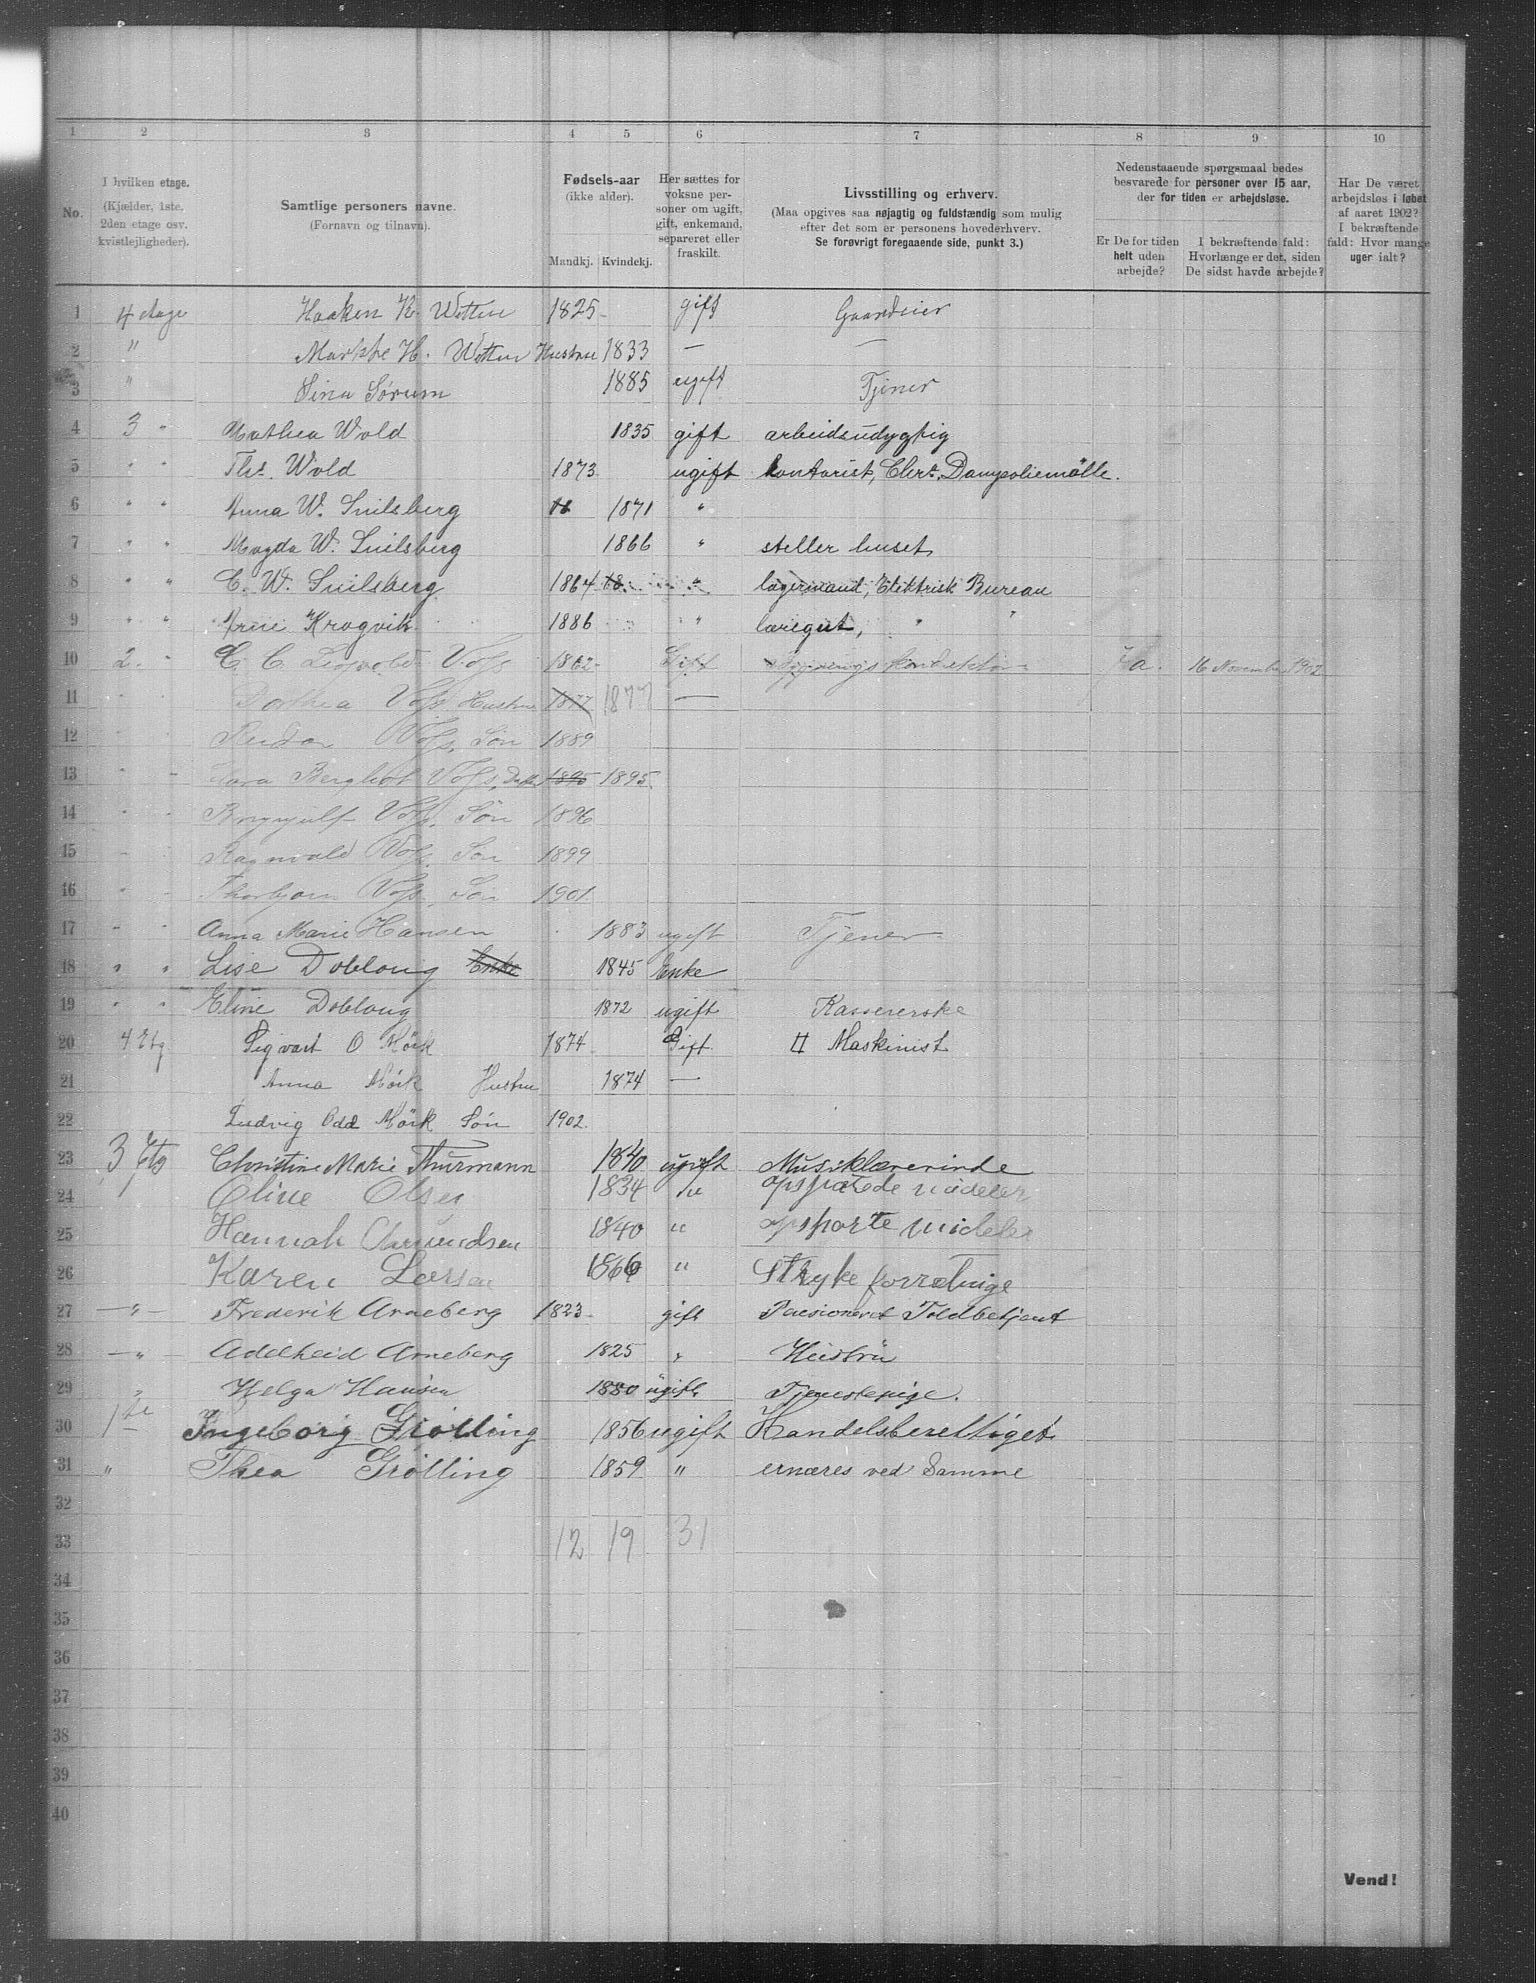 1 2 3 4 5 6 7 8 9 10
No.
I hvilken etage. (Kjælder, 1ste, 2den etage osv. kvistlejligheder).
Samtlige personers navne. (Fornavn og tilnavn).
Fødsels-aar (ikke alder). Mandkj. Kvindekj.
Her sættes for voksne personer om ugift, gift, enkemand, separeret eller fraskilt.
Livsstilling og erhverv. (Maa opgives saa nøjagtig og fuldstændig som mulig efter det som er personens hovederhverv. Se forøvrigt foregaaende side, punkt 3.)
Nedenstaaende spørgsmaal bedes besvarede for personer over 15 aar, der for tiden er arbejdsløse.
Er De for tiden helt uden arbejde?
I bekræftende fald: Hvorlænge er det, siden De sidst havde arbejde?
Har De været arbejdsløs i løbet af aaret 1902? I bekræftende fald: Hvor mange uger ialt?
1 4 etage Haaken K. Wetten 1825 gift Gaardeier
2 " H. Wetten Hustru 1833 —
3 " Sina Sørum 1885 ugift Tjener
4 3 " Mathea Wold 1835 gift arbeidsudygtig
5 " " Wold 1873 ugift kontorist, Chr. Dampoliemølle.
6 " " Anna W. Snilsberg 1871 "
7 " " Magda W. Snilsberg 1866 " steller huset
8 " " C. W. Snilsberg 1864 18 " lagermand, Elektrisk Bureau
9 " " Arne Krogvik 1886 " læregut, " "
10 2. " C. C. Voss 1862 Gift Ja. 16 November 1902
11 " Dorthea Voss Hustru 1877 1877 —
12 " Reidar Voss, Søn 1889
13 " " Bergliot Voss, Datter 1895 1895
14 " " Brynjulf Voss, Søn 1896
15 " " Ragnvald Voss, Søn 1899
16 " " Thorbjørn Voss, Søn 1901
17 " " Anna Marie Hansen 1883 ugift Tjener
18 " " Lise Dobloug Enke 1845 Enke
19 " " Eline Dobloug 1872 ugift Kassererske
20 4 Etg Sigvart O Mörk 1874 Gift II Maskinist
21 Anna Mörk Hustru 1874 —
22 Ludvig Odd Mörk Søn 1902
23 3 Etg Christine Marie Thurmann 1840 ugift Musiklærerinde
24 Oline Olsen 1834 do opsparede mideler
25 Hannah Amundsen 1840 " opsparte mideler
26 Karen Larsen 1866 " Stryke forretnige
27 —"— Frederik Arneberg 1823 gift Pensioneret Toldbetjent
28 —" Adelheid Arneberg 1825 " Hustru
29 " Helga Hansen 1880 ugift Tjenestepige.
30 1ste Ingeborg Grötting 1856 ugift Handelsberettiget
31 " Thea Grötting 1859 " ernæres ved Samme
32
33 12 19 31
34
35
36
37
38
39
40
Vend!